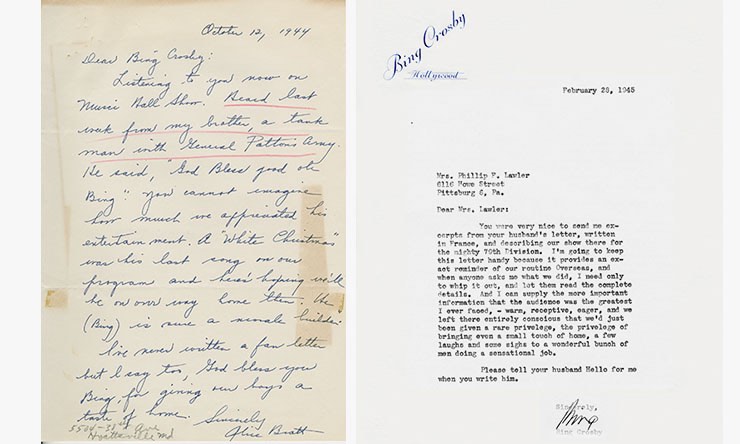 October 12, 1944
Dear Bing Crosby:
Listening to you now on
Music Hall Show. Heard last
week from my brother, a tank
man with General Patton's Army.
He said, "God Bless good ole
Bing" You cannot imagine
how much we appreciated his
entertainment. A "White Christmas"
was his last song on our
program and here's hoping we'll
be on our way home then. He
(Bing) is sure a morale builder
I've never written a fan letter
but I say too, God bless you
Bing, for giving our boys a
taste of home. Sincerely
Alice Bratt
5504-38th Ave
Hyattsville Md
Bing Crosby
Hollywood
February 28, 1945
Mrs. Phillip F. Lawler
6116 Howe Street
Pittsburg 6, Pa.
Dear Mrs. Lawler:
You were very nice to send me ex-
cerpts from your husband's letter, written
in France, and describing our show there for
the nighty 70th Division. I'm going to keep
this letter handy because it provides an ex-
act reminder of our routine Overseas, and
when anyone asks me what we did, I need only
to whip it out, and let them read the complete
details. And I can supply the more important
information that the audience was the greatest
I ever faced, - warm, receptive, eager, and we
left there entirely conscious that we'd just
been given a rare privelege, the privelege of
bringing even a small touch of home, a few
laughs and some sighs to a wonderful bunch of
men doing a sensational job.
Please tell your husband Hello for me
when you write him.
Sincerely,
Bing
Bing Crosby